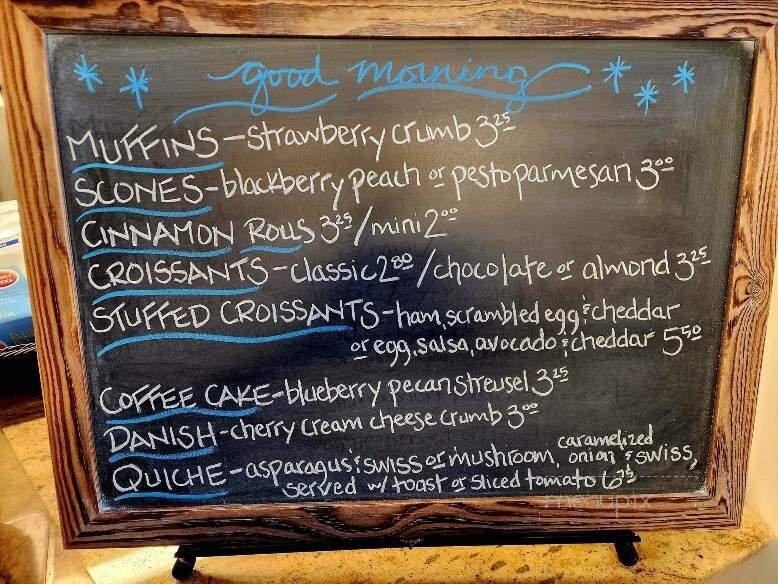 good morning
MUFFINS-strawberry crumb 3.25
SCONES-blackberry peach or pesto parmesan 3.00
CINNAMON ROLLS 3.25/mini 2.00
CROISSANTS-classic 2.80/chocolate or almond 3.25
STUFFED CROISSANTS-ham, scrambled egg, & cheddar
or egg, salsa, avocado & cheddar 5.50
COFFEE CAKE-blueberry pecan streusel 3.25
DANISH-cherry cream cheese crumb 3.00
QUICHE-asparagus & swiss or mushroom, caramelized onion & swiss,
served w/ toast or sliced tomato 6.75